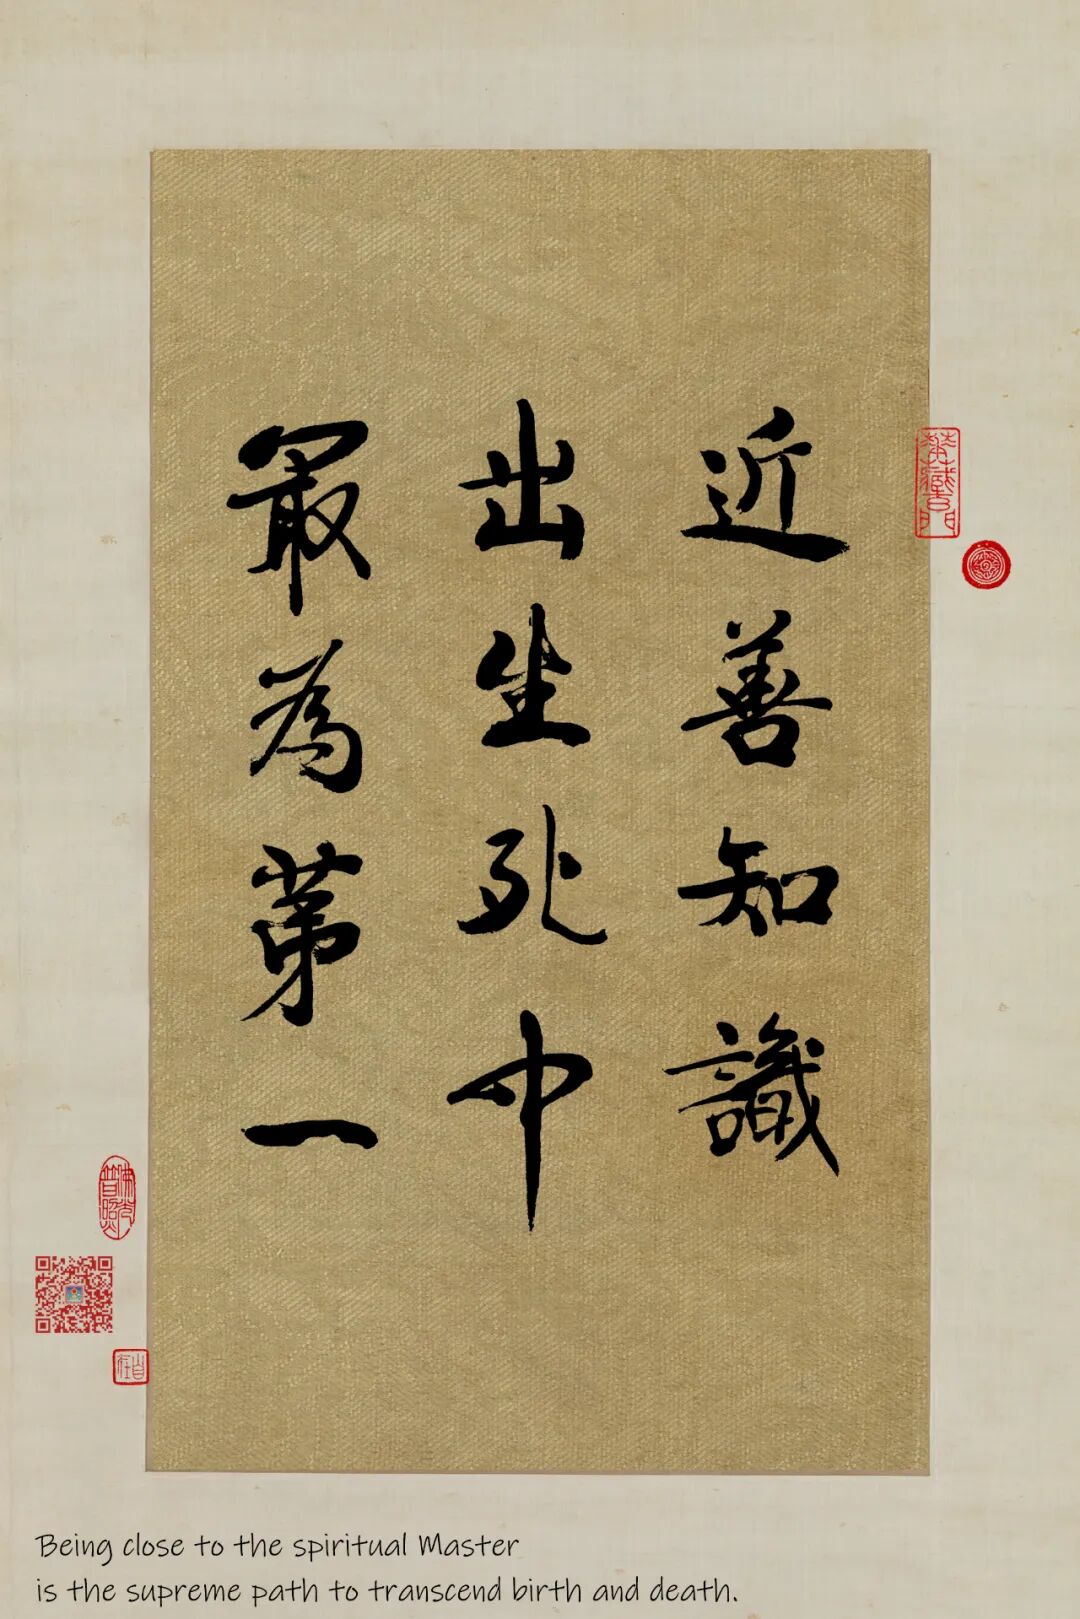 近善知識
出生死中
最為第一
華藏玄門
佛光普照
自在
Being close to the spiritual Master
is the supreme path to transcend birth and death.